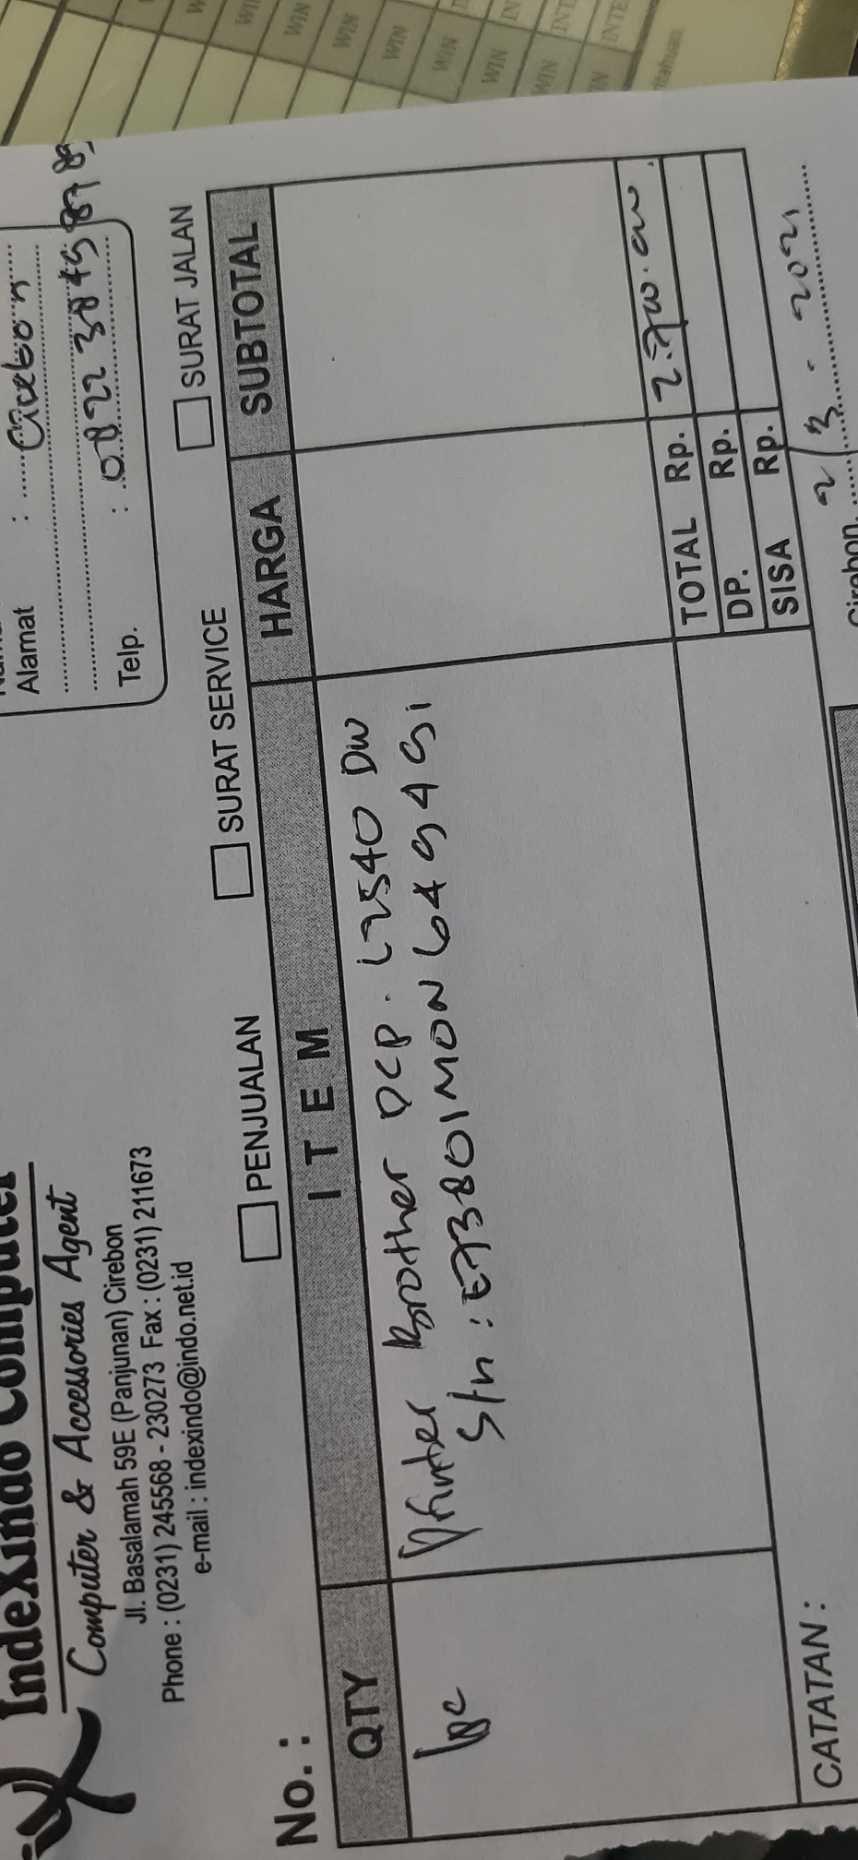 IndeXindo Computer
Computer & Accessories Agent
Jl. Basalamah 59E (Panjunan) Cirebon
Phone : (0231) 245568 - 230273 Fax : (0231) 211673
e-mail : indexindo@indo.net.id
Alamat : Cirebon
Telp. : 0822 3849
No. :
PENJUALAN SURAT SERVICE SURAT JALAN
QTY ITEM HARGA SUBTOTAL
1pc Printer Brother DCP. L2540 DW
S/n : E73801M0N649491
TOTAL Rp.
DP. Rp.
SISA Rp.
CATATAN :
Cirebon, 2/3 - 2021
WIN WIN WIN WIN WIN WIN WIN WIN